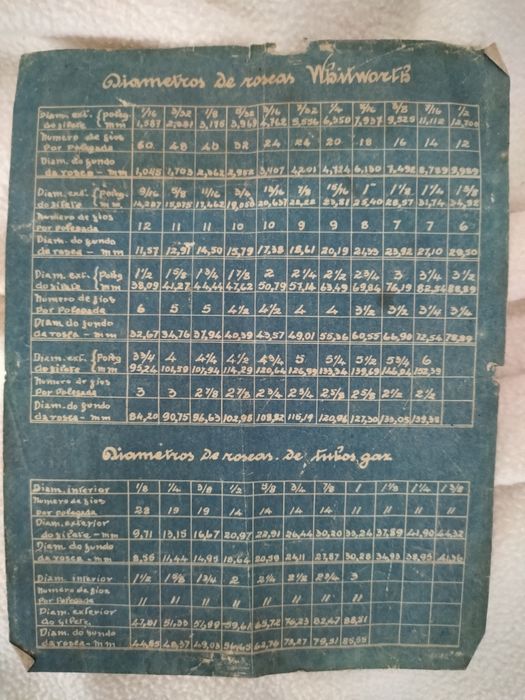 Diametros de roscas Whitworth
Diam. ext. { Poleg 1/16 3/32 1/8 5/32 3/16 7/32 1/4 5/16 3/8 7/16 1/2
do sifete { mm 1,587 2,381 3,175 3,969 4,762 5,556 6,350 7,937 9,525 11,112 12,700
Numero de fios
por polegada 60 48 40 32 24 24 20 18 16 14 12
Diam. do fundo
da rosca - mm 1,045 1,703 2,362 2,952 3,407 4,201 4,724 6,130 7,492 8,789 9,989
Diam. ext. { Poleg 9/16 5/8 11/16 3/4 13/16 7/8 15/16 1" 1 1/8 1 1/4 1 3/8
do sifete { mm 14,287 15,875 17,462 19,050 20,637 22,22 23,81 25,40 28,57 31,74 34,92
Numero de fios
por polegada 12 11 11 10 10 9 9 8 7 7 6
Diam. do fundo
da rosca - mm 11,57 12,91 14,50 15,79 17,38 18,61 20,19 21,33 23,92 27,10 29,50
Diam. ext. { Poleg 1 1/2 1 5/8 1 3/4 1 7/8 2 2 1/4 2 1/2 2 3/4 3 3 1/4 3 1/2
do sifete { mm 38,09 41,27 44,44 47,62 50,79 57,14 63,49 69,84 76,19 82,54 88,89
Numero de fios
por polegada 6 5 5 4 1/2 4 1/2 4 4 3 1/2 3 1/2 3 1/4 3 1/4
Diam. do fundo
da rosca - mm 32,67 34,76 37,94 40,39 43,57 49,01 55,36 60,55 66,90 72,54 78,89
Diam. ext. { Poleg 3 3/4 4 4 1/4 4 1/2 4 3/4 5 5 1/4 5 1/2 5 3/4 6
do sifete { mm 95,24 101,59 107,94 114,29 120,64 126,99 133,34 139,69 146,04 152,39
Numero de fios
por polegada 3 3 2 7/8 2 7/8 2 3/4 2 3/4 2 5/8 2 5/8 2 1/2 2 1/2
Diam. do fundo
da rosca - mm 84,20 90,75 96,63 102,98 108,82 115,19 120,96 127,30 133,05 139,38
Diametros de roscas. de tubos gaz
Diam. inferior 1/8 1/4 3/8 1/2 5/8 3/4 7/8 1 1 1/8 1 1/4 1 3/8
Numero de fios
por polegada 28 19 19 14 14 14 14 11 11 11 11
Diam. exterior
do sifete - mm 9,71 13,15 16,67 20,97 22,91 26,44 30,20 33,24 37,89 41,90 44,32
Diam. do fundo
da rosca - mm 8,56 11,44 14,95 18,64 20,59 24,11 27,87 30,28 34,93 38,95 41,36
Diam. inferior 1 1/2 1 5/8 1 3/4 2 2 1/4 2 1/2 2 3/4 3
Numero de fios
por polegada 11 11 11 11 11 11 11 11
Diam. exterior
do sifete. 47,81 51,33 51,99 59,61 65,72 76,23 82,47 88,51
Diam. do fundo
da rosca - mm 44,85 48,37 49,03 56,65 62,76 73,27 79,51 85,55